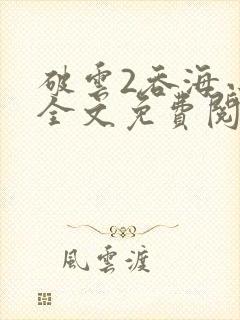 破雲2吞海
全文免費閱
風雲渡